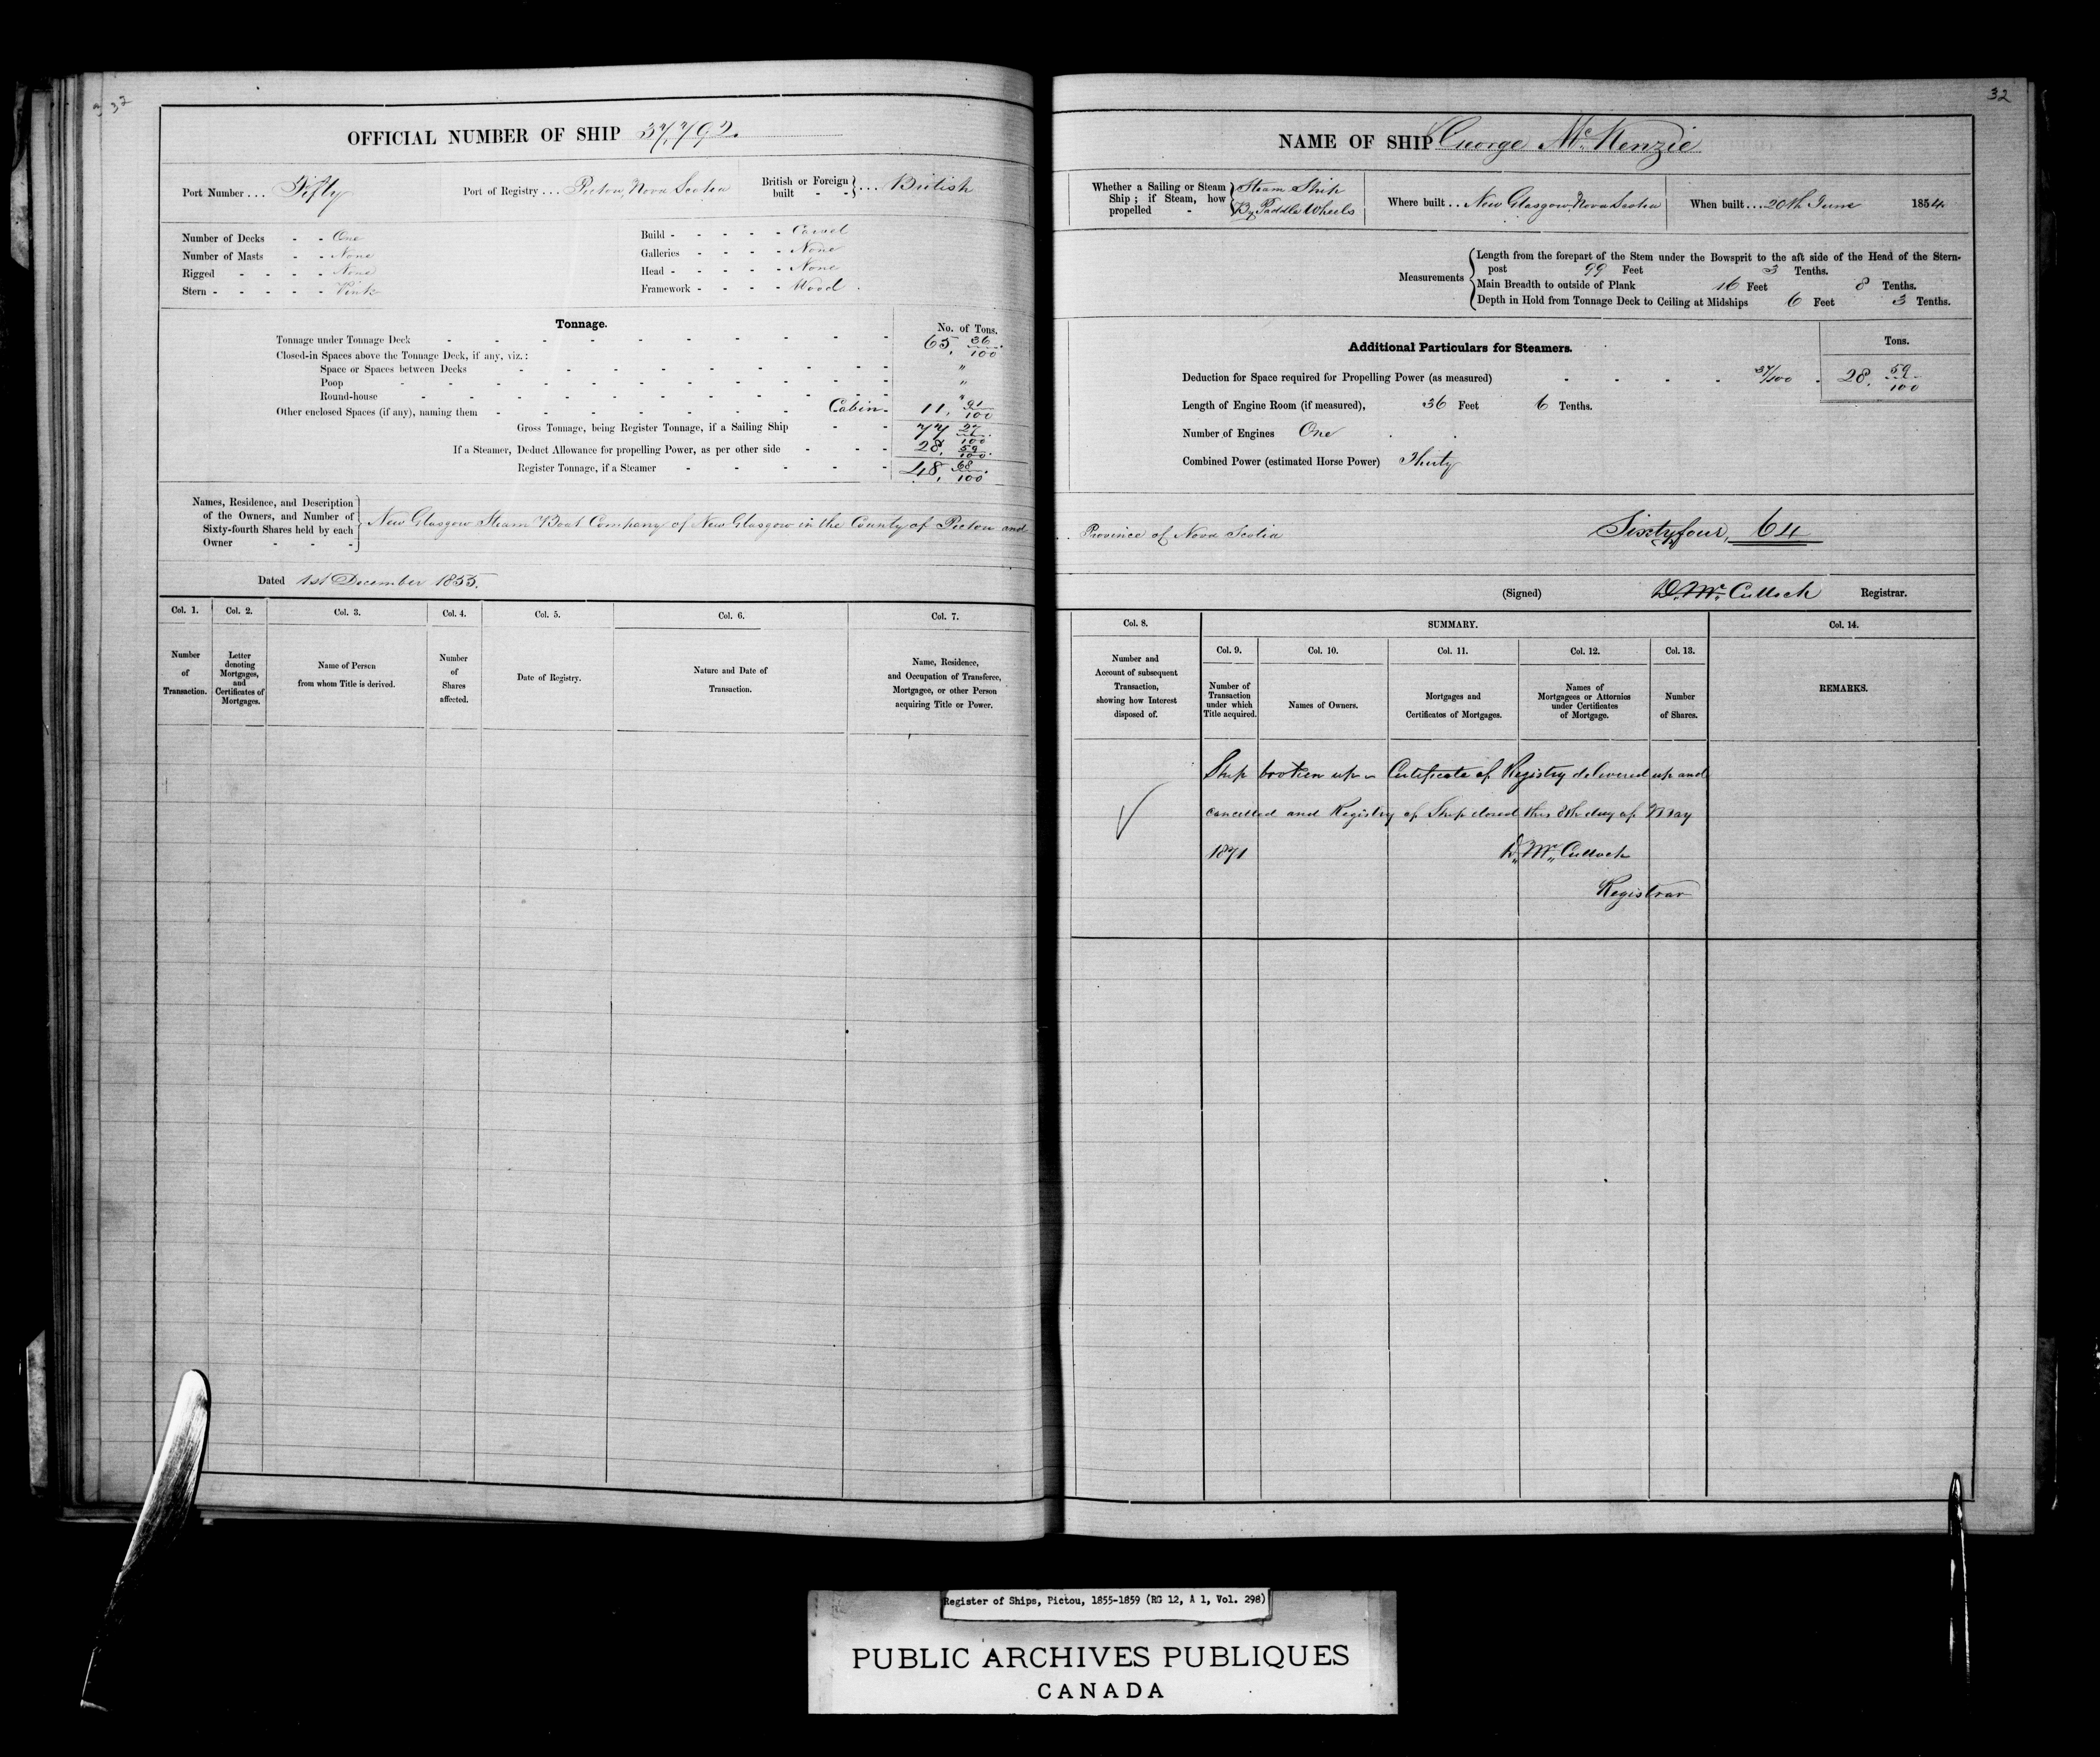 32
OFFICIAL NUMBER OF SHIP 37,792.
Port Number ... Fifty Port of Registry ... Pictou, Nova Scotia British or Foreign built - - } ... British
Number of Decks - - One
Number of Masts - - None
Rigged - - - - None
Stern - - - - - Pink
Build - - - - - Carvel
Galleries - - - - None
Head - - - - - None
Framework - - - - Wood
Tonnage. No. of Tons.
Tonnage under Tonnage Deck 65, 36/100
Closed-in Spaces above the Tonnage Deck, if any, viz.:
Space or Spaces between Decks "
Poop "
Round-house "
Other enclosed Spaces (if any), naming them Cabin 11, 91/100
Gross Tonnage, being Register Tonnage, if a Sailing Ship 77 27/100
If a Steamer, Deduct Allowance for propelling Power, as per other side 28, 59/100
Register Tonnage, if a Steamer 48, 68/100
Names, Residence, and Description
of the Owners, and Number of
Sixty-fourth Shares held by each
Owner - - -
New Glasgow Steam Boat Company of New Glasgow in the County of Pictou and
Dated 1st December 1855.
Col. 1. Col. 2. Col. 3. Col. 4. Col. 5. Col. 6. Col. 7.
Number of Transaction.
Letter denoting Mortgages, and Certificates of Mortgages.
Name of Person from whom Title is derived.
Number of Shares affected.
Date of Registry.
Nature and Date of Transaction.
Name, Residence, and Occupation of Transferee, Mortgagee, or other Person acquiring Title or Power.
32
NAME OF SHIP George McKenzie
Whether a Sailing or Steam Ship; if Steam, how propelled - } Steam Ship By Paddle Wheels
Where built .. New Glasgow Nova Scotia When built ... 20th June 1854
Measurements
Length from the forepart of the Stem under the Bowsprit to the aft side of the Head of the Stern-
post 99 Feet 3 Tenths.
Main Breadth to outside of Plank 16 Feet 8 Tenths.
Depth in Hold from Tonnage Deck to Ceiling at Midships 6 Feet 3 Tenths.
Additional Particulars for Steamers. Tons.
Deduction for Space required for Propelling Power (as measured) 37/100 28, 59/100
Length of Engine Room (if measured), 36 Feet 6 Tenths.
Number of Engines One
Combined Power (estimated Horse Power) Thirty
Province of Nova Scotia Sixtyfour, 64
(Signed) D. Mc Culloch Registrar.
Col. 8. SUMMARY. Col. 14.
Col. 9. Col. 10. Col. 11. Col. 12. Col. 13.
Number and Account of subsequent Transaction, showing how Interest disposed of.
Number of Transaction under which Title acquired.
Names of Owners.
Mortgages and Certificates of Mortgages.
Names of Mortgagees or Attornies under Certificates of Mortgage.
Number of Shares.
REMARKS.
Ship broken up - Certificate of Registry delivered up and
cancelled and Registry of Ship closed this 8th day of May
1871 D. Mc Culloch
Registrar
Register of Ships, Pictou, 1855-1859 (RG 12, A 1, Vol. 298)
PUBLIC ARCHIVES PUBLIQUES
CANADA